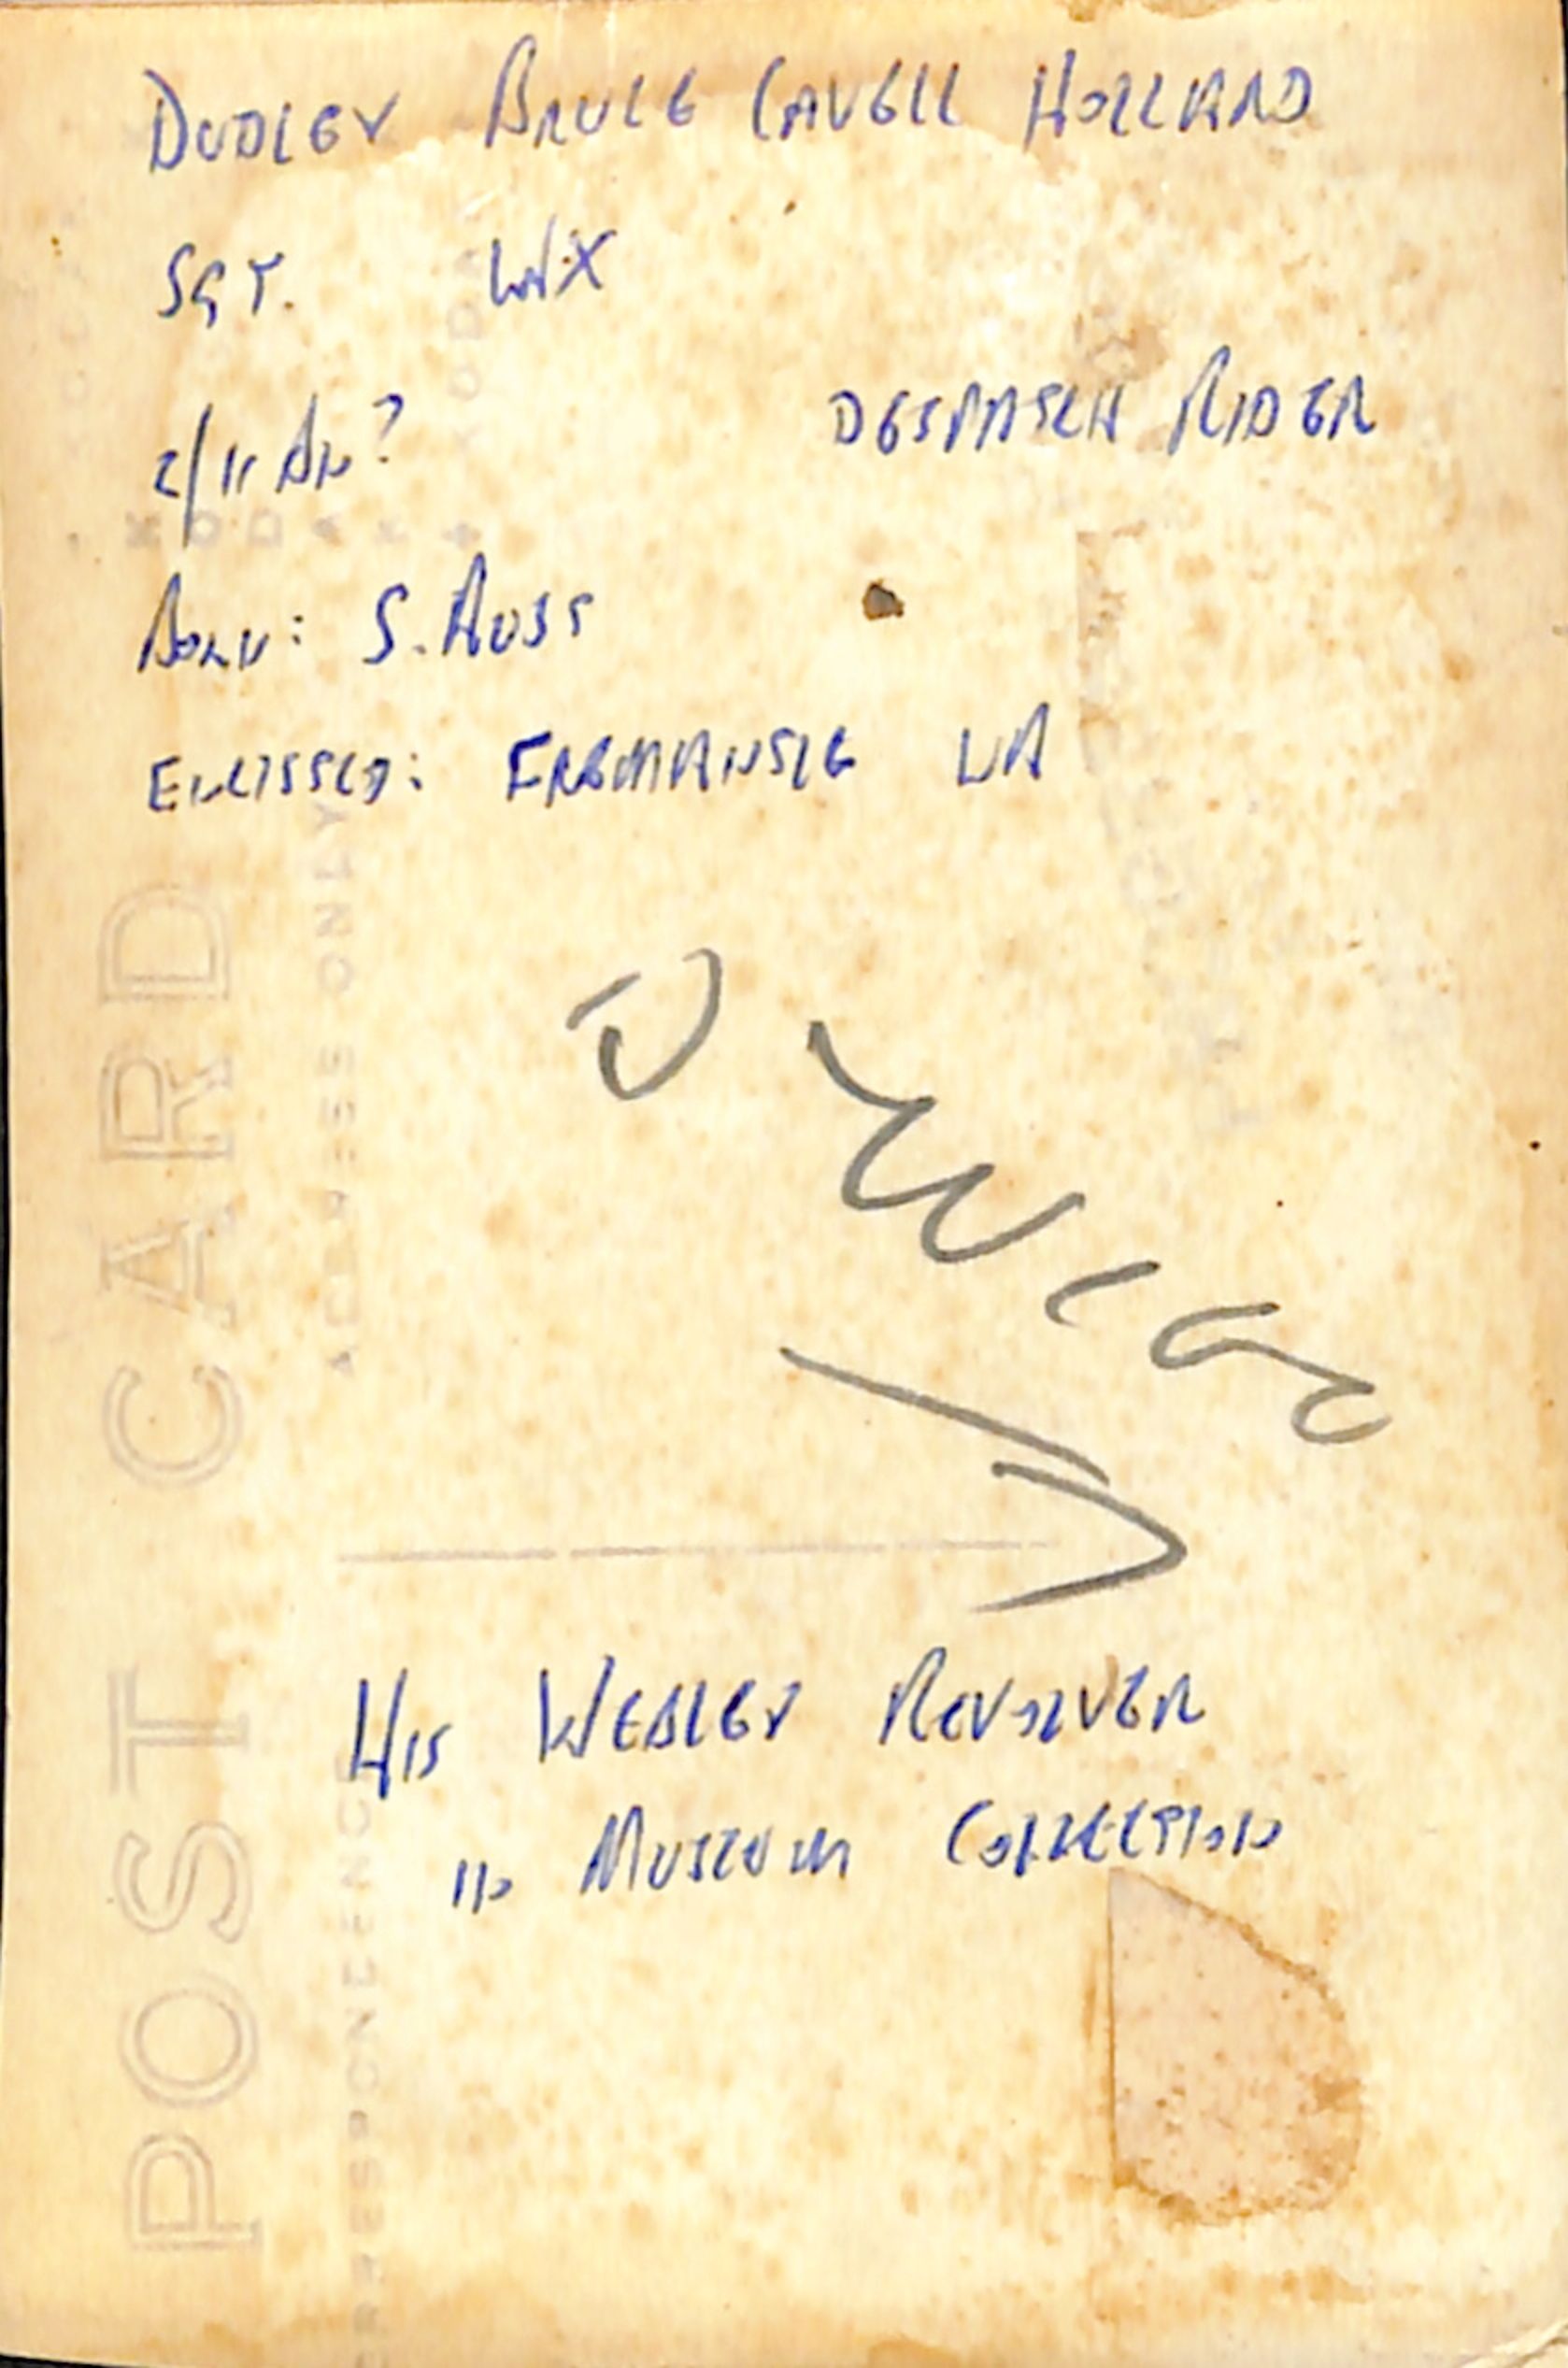 DUDLEY BRUCE CAVELL HOLLAND
SGT. WX
2/11 BN?
DESPATCH RIDER
BORN: S. AUST
ENLISTED: FREMANTLE WA
HIS WEBLEY REVOLVER
IN MUSEUM COLLECTION
POST CARD
ADDRESS ONLY
CORRESPONDENCE